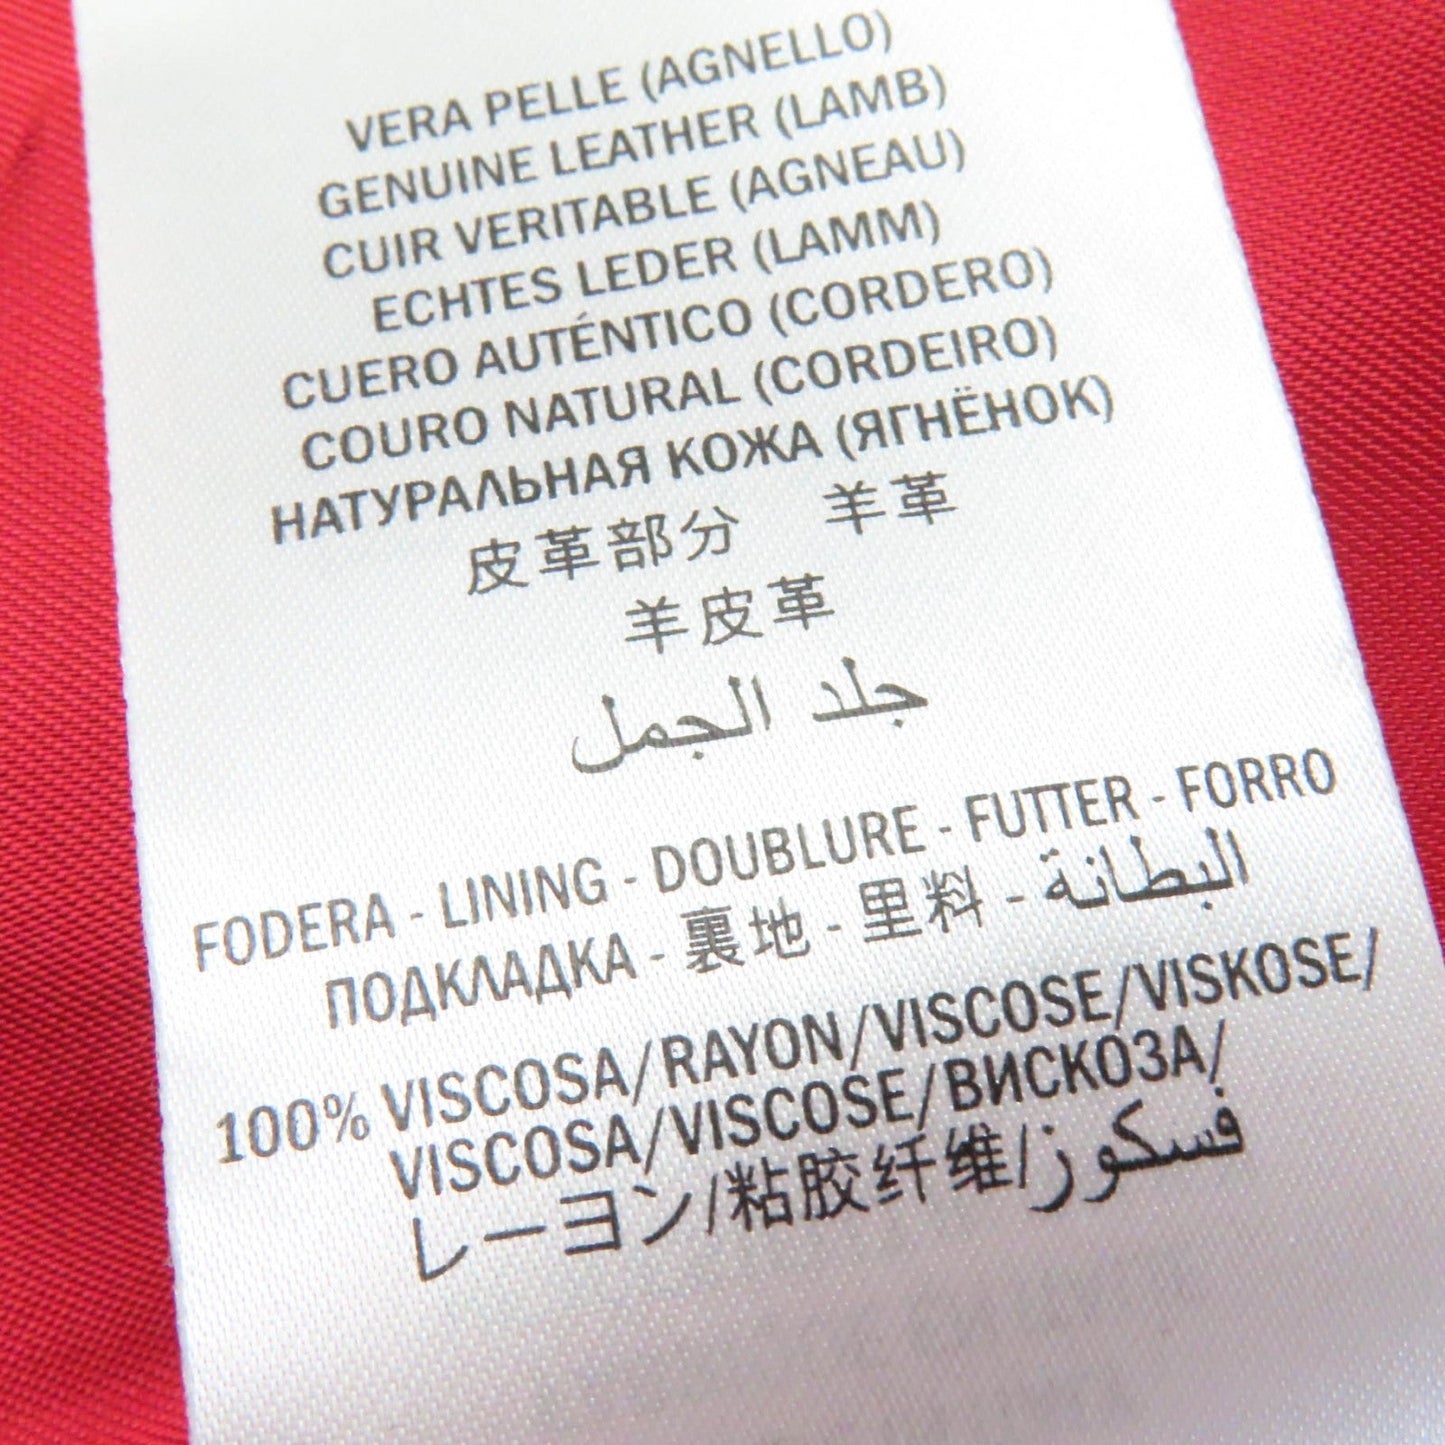 VERA PELLE (AGNELLO)
GENUINE LEATHER (LAMB)
CUIR VERITABLE (AGNEAU)
ECHTES LEDER (LAMM)
CUERO AUTÉNTICO (CORDERO)
COURO NATURAL (CORDEIRO)
НАТУРАЛЬНАЯ КОЖА (ЯГНЁНОК)
皮革部分　羊革
羊皮革
جلد الجمل
FODERA - LINING - DOUBLURE - FUTTER - FORRO
ПОДКЛАДКА - 裏地 - 里料 - البطانة
100% VISCOSA/RAYON/VISCOSE/VISKOSE/
VISCOSA/VISCOSE/ВИСКОЗА/
レーヨン/粘胶纤维/فسكوز